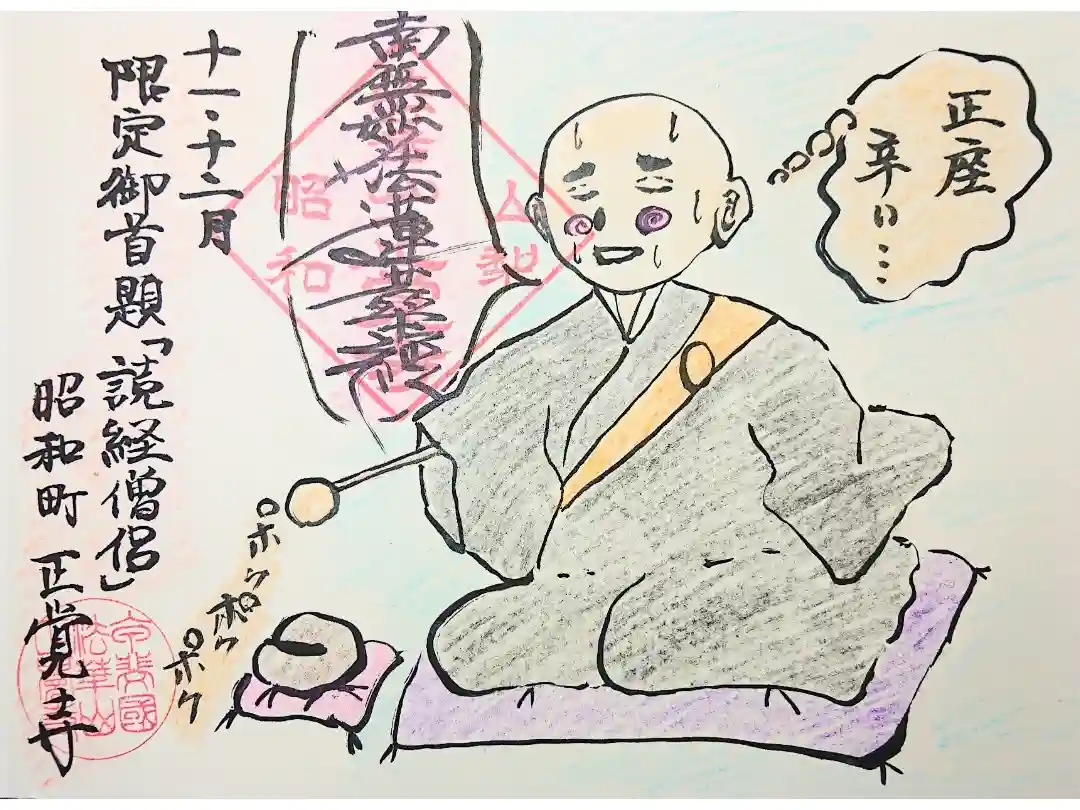 正座
辛い…
南無妙法蓮華経
山梨
昭和
十一・十二月
限定御首題「読経僧侶」
昭和町 正覚寺
ポク
ポク
ポク
甲斐國
法華山